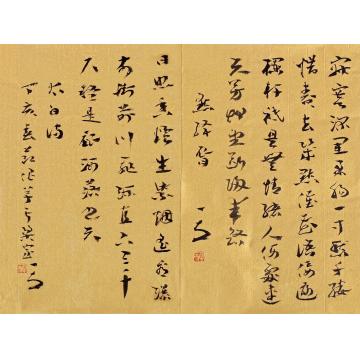 寂寞深闺柔肠一寸愁千缕
惜春春去几点催花雨倚遍
栏杆只是无情绪人何处连
天芳草望断归来路
点绛唇
日照香炉生紫烟遥看瀑
布挂前川飞流直下三千
尺疑是银河落九天
太白诗
丁亥春